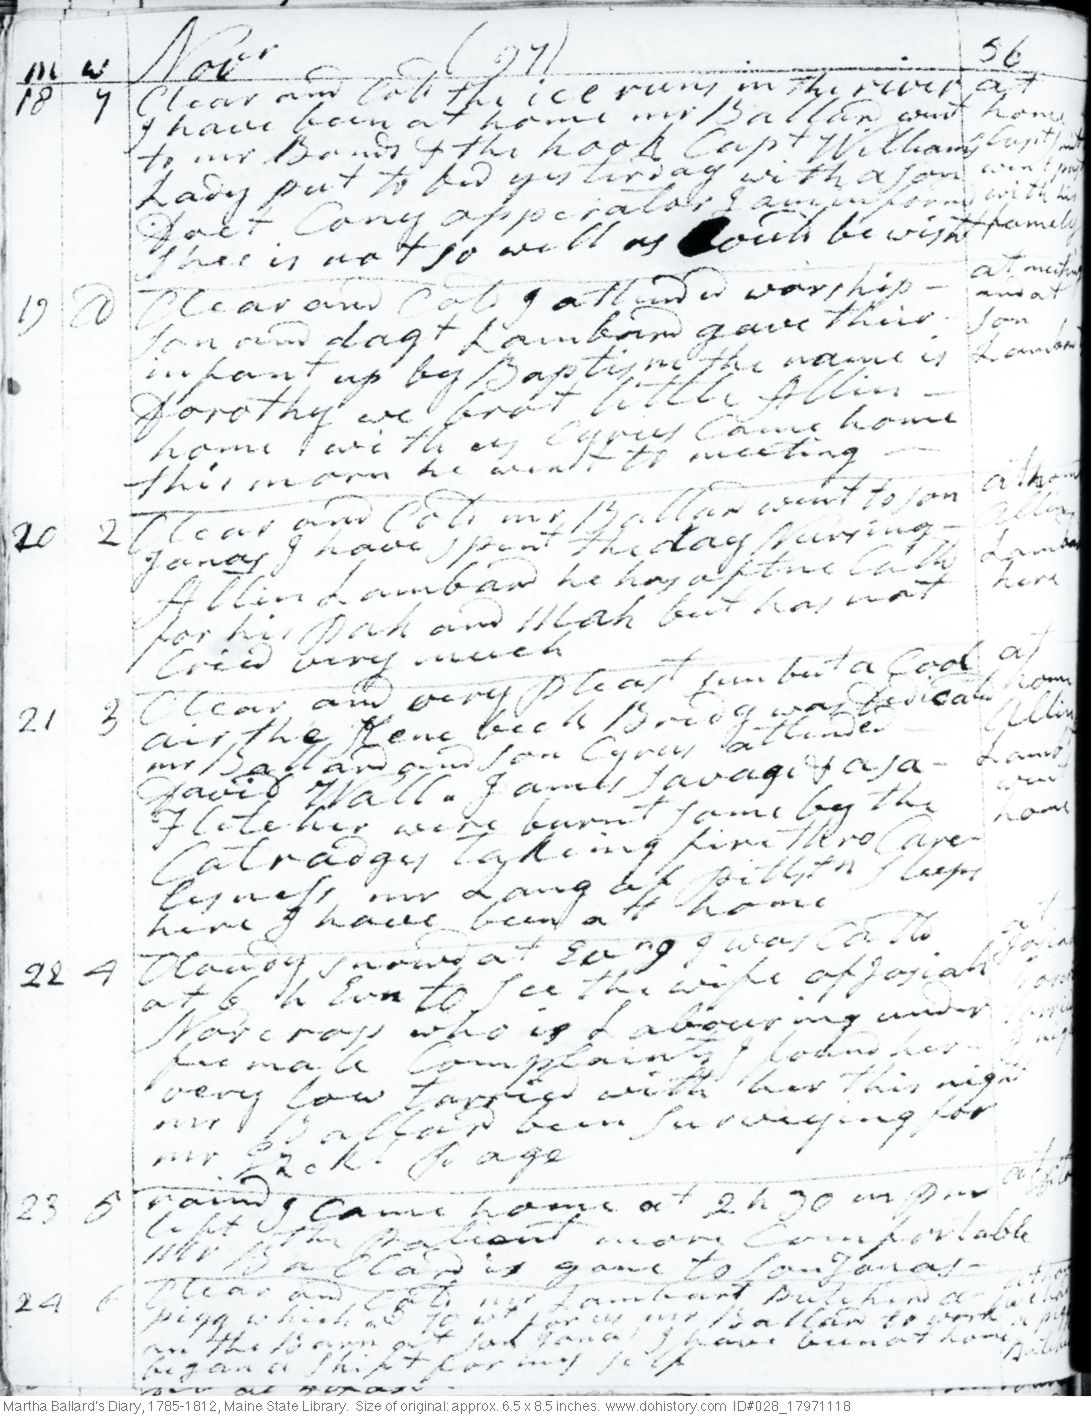 m w Novr (97) 56
18 7 Clear and Cold the ice runs in the river at
I have been at home mr Ballard went home
to mr Bonds & the hook Capt Williams Capt
Lady put to bed yesterday with a son
Doct Cony opperator I am inform'd with his
Shee is not so well as Could be wisht famely
19 D Clear and Cold I attended worship - at meeting
son and dagt Lambard gave their and at
infant up by Baptism the name is son
Dorothy we brot little Allin - Lambard
home with us Cyrus Came home
this morn he went to meeting -
20 2 Clear and Cold mr Ballard went to son at home
Jonas I have spent the day Nursing - Allin
Allin Lambard he has oftne Calld Lambard
for his Pah and Mah but has not here
Cried very much
21 3 Clear and very pleast sun but a Cool at
air the Kene beck Bredg was Dedicated home
mr Ballard and son Cyrus attended - Allin
David Wall. James Savage & asa - Lambd
Fletcher were burnt some by the went
Catradges takeing fire thro Care- home
lesness mr Lang of Pittstn sleeps
here I have been at home
22 4 Cloudy snowd at Evng I was Calld at
at 6 h Evn to See the wife of Josiah
Norcross who is Labouring under
fee male Complaints I found her
very low tarried with her this night
mr Ballard been Surveying for
mr Page
23 5 raind I Came home at 2 h 30 m pm at
left the Patient more Comfortable
Mr Ballard is gone to son Jonas -
24 6 Clear and Cold mr Lambart Butcherd a - at home
pigg which for us mr Ballard to work
on the Barn at son Jonas I have been at home a pigg
began a Shift for my self
Martha Ballard's Diary, 1785-1812, Maine State Library. Size of original: approx. 6.5 x 8.5 inches. www.dohistory.com ID#028_17971118